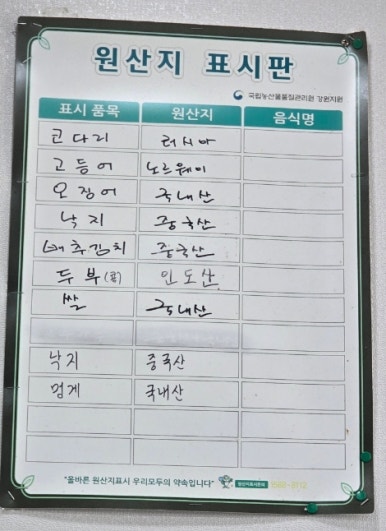 원산지 표시판
국립농산물품질관리원 강원지원
표시 품목 원산지 음식명
코다리 러시아
고등어 노르웨이
오징어 국내산
낙지 중국산
배추김치 중국산
두부(콩) 인도산
쌀 국내산
낙지 중국산
멍게 국내산
"올바른 원산지표시 우리모두의 약속입니다" 원산지표시문의 1588-8112